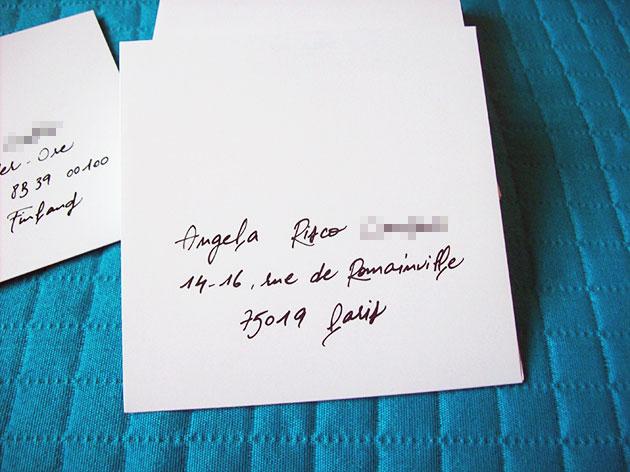 er-Ore
8B 39 00100
Finland
Angela Risco
14-16, rue de Romainville
75019 Paris